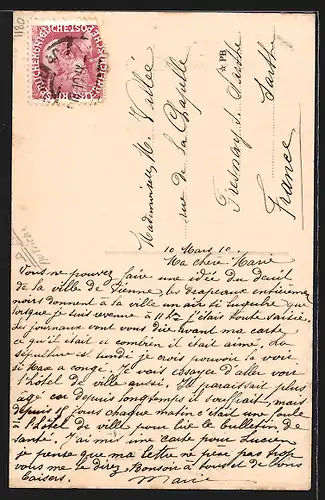 1180
Mademoiselle M. Vallée
rue de la Chapelle
Fresnay s. Sarthe
Sarthe
France
10 Mars 10
Ma chère Marie
Vous ne pouvez faire une idée du deuil
de la ville de Vienne, les drapeaux entièrement
noirs donnent à la ville un air si lugubre que
lorsque je suis arrivée à 11h j'étais toute saisie.
Les journaux vont vous dire avant ma carte
ce qu'il était et combien il était aimé. La
sépulture est lundi je crois pouvoir la voir
si Max a congé. Je vais essayer d'aller voir
l'hôtel de ville aussi. Il paraissait plus
âgé car depuis longtemps il souffrait, mais
depuis 15 jours chaque matin c'était une foule
à l'hôtel de ville pour lire le bulletin de
santé. J'ai mis une carte pour Lucien
je pense que ma lettre ne pèse pas trop
vous me le direz. Bonsoir à tous et de bons
baisers.
Marie